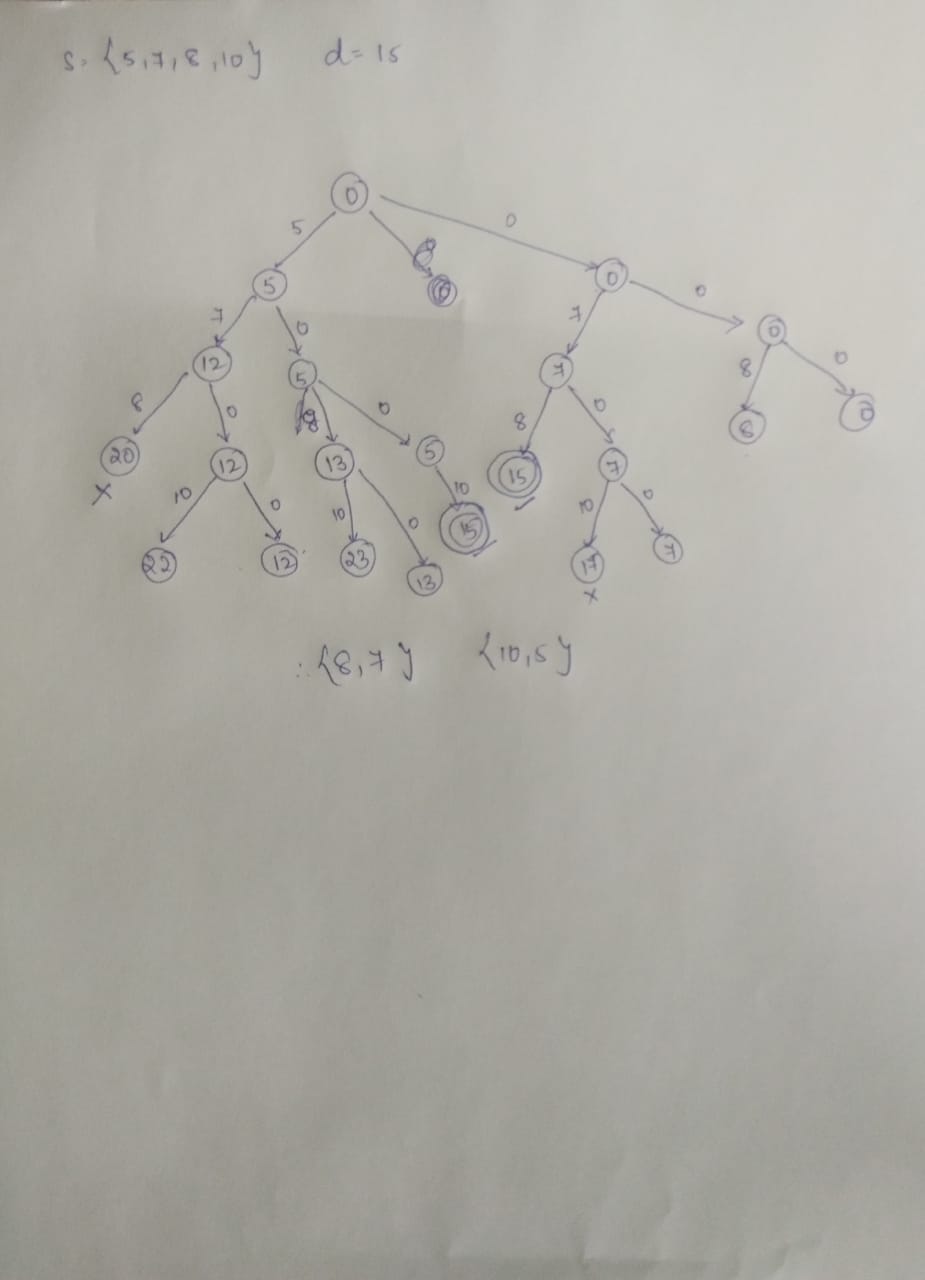 S= {5,7,8,10} d=15
0
5 0
5 0
7 0 7 0
12 5 7 0
8 0 8 0 8 0 8 0
20 12 13 5 15 7 8 0
x 10 0 10 0 10 10 0
22 12 23 13 15 17 7
x
∴ {8,7} {10,5}